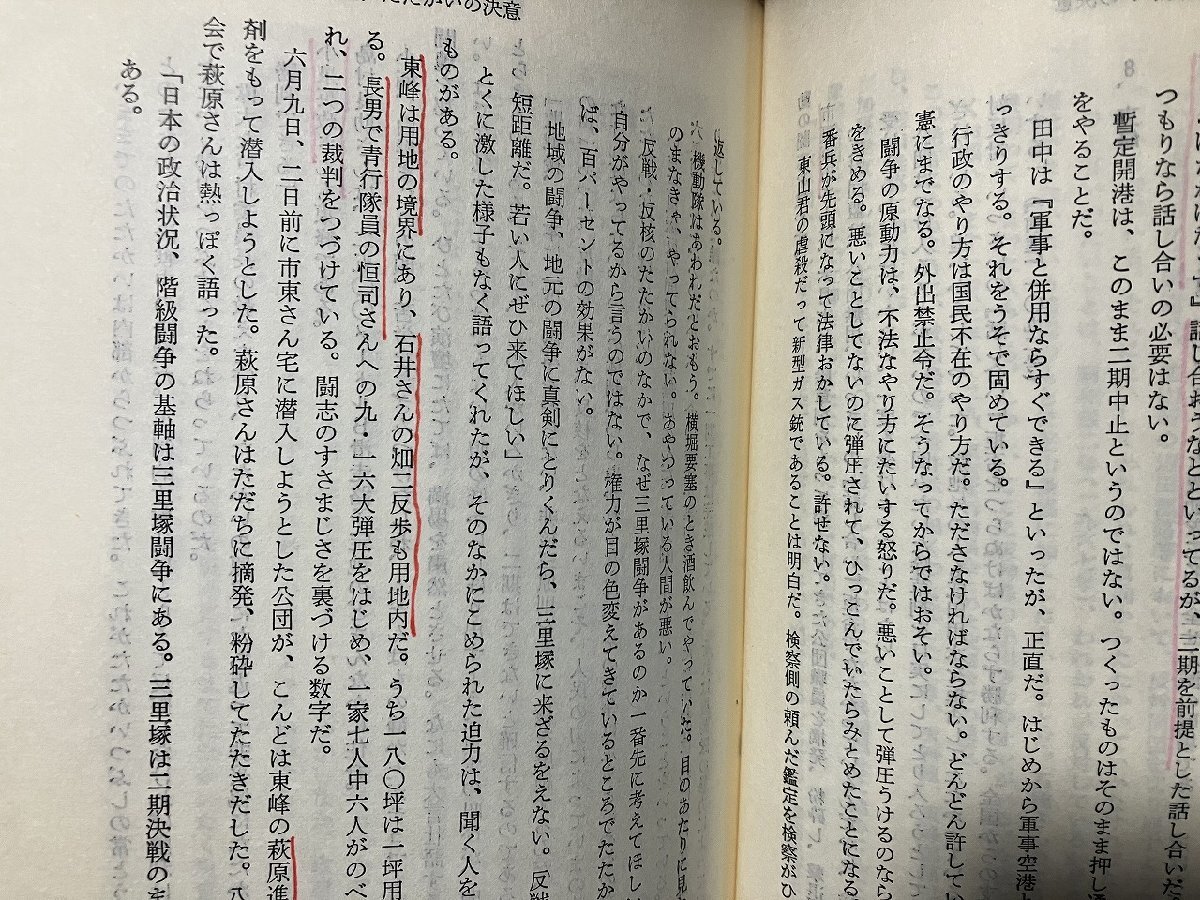 つもりなら話し合いの必要はない。
暫定開港は、このまま二期中止というのではない。つくったものはそのまま押し通
をやることだ。
田中は『軍事と併用ならすぐできる』といったが、正直だ。はじめから軍事空港と
っきりする。それをうそで固めている。
行政のやり方は国民不在のやり方だ。たださなければならない。どんどん許してい
憲にまでなる。外出禁止令だ。そうなってからではおそい。
闘争の原動力は、不法なやり方にたいする怒りだ。悪いことして弾圧うけるのなら
をきめる。悪いことしてないのに弾圧されて、ひっこんでいたらみとめたことになる
番兵が先頭になって法律おかしている。許せない。
東山君の虐殺だって新型ガス銃であることは明白だ。検察側の頼んだ鑑定を検察がひ
返している。
機動隊はあわれだとおもう。横堀要塞のとき酒飲んでやっていた。目のあたりに見
のまなきゃ、やってられない。あやつっている人間が悪い。
反戦・反核のたたかいのなかで、なぜ三里塚闘争があるのか一番先に考えてほし
自分がやってるから言うのではない。権力が目の色変えてきているところでたたか
ば、百パーセントの効果がない。
地域の闘争、地元の闘争に真剣にとりくんだら、三里塚に来ざるをえない。反戦
短距離だ。若い人にぜひ来てほしい」
とくに激した様子もなく語ってくれたが、そのなかにこめられた迫力は、聞く人を
ものがある。
東峰は用地の境界にあり、石井さんの畑二反歩も用地内だ。うち一八〇坪は一坪用
る。長男で青行隊員の恒司さんへの九・一六大弾圧をはじめ、一家七人中六人がのべ
れ、二つの裁判をつづけている。闘志のすさまじさを裏づける数字だ。
六月九日、二日前に市東さん宅に潜入しようとした公団が、こんどは東峰の萩原進
剤をもって潜入しようとした。萩原さんはただちに摘発、粉砕してたたきだした。八
会で萩原さんは熱っぽく語った。
「日本の政治状況、階級闘争の基軸は三里塚闘争にある。三里塚は二期決戦の
ある。